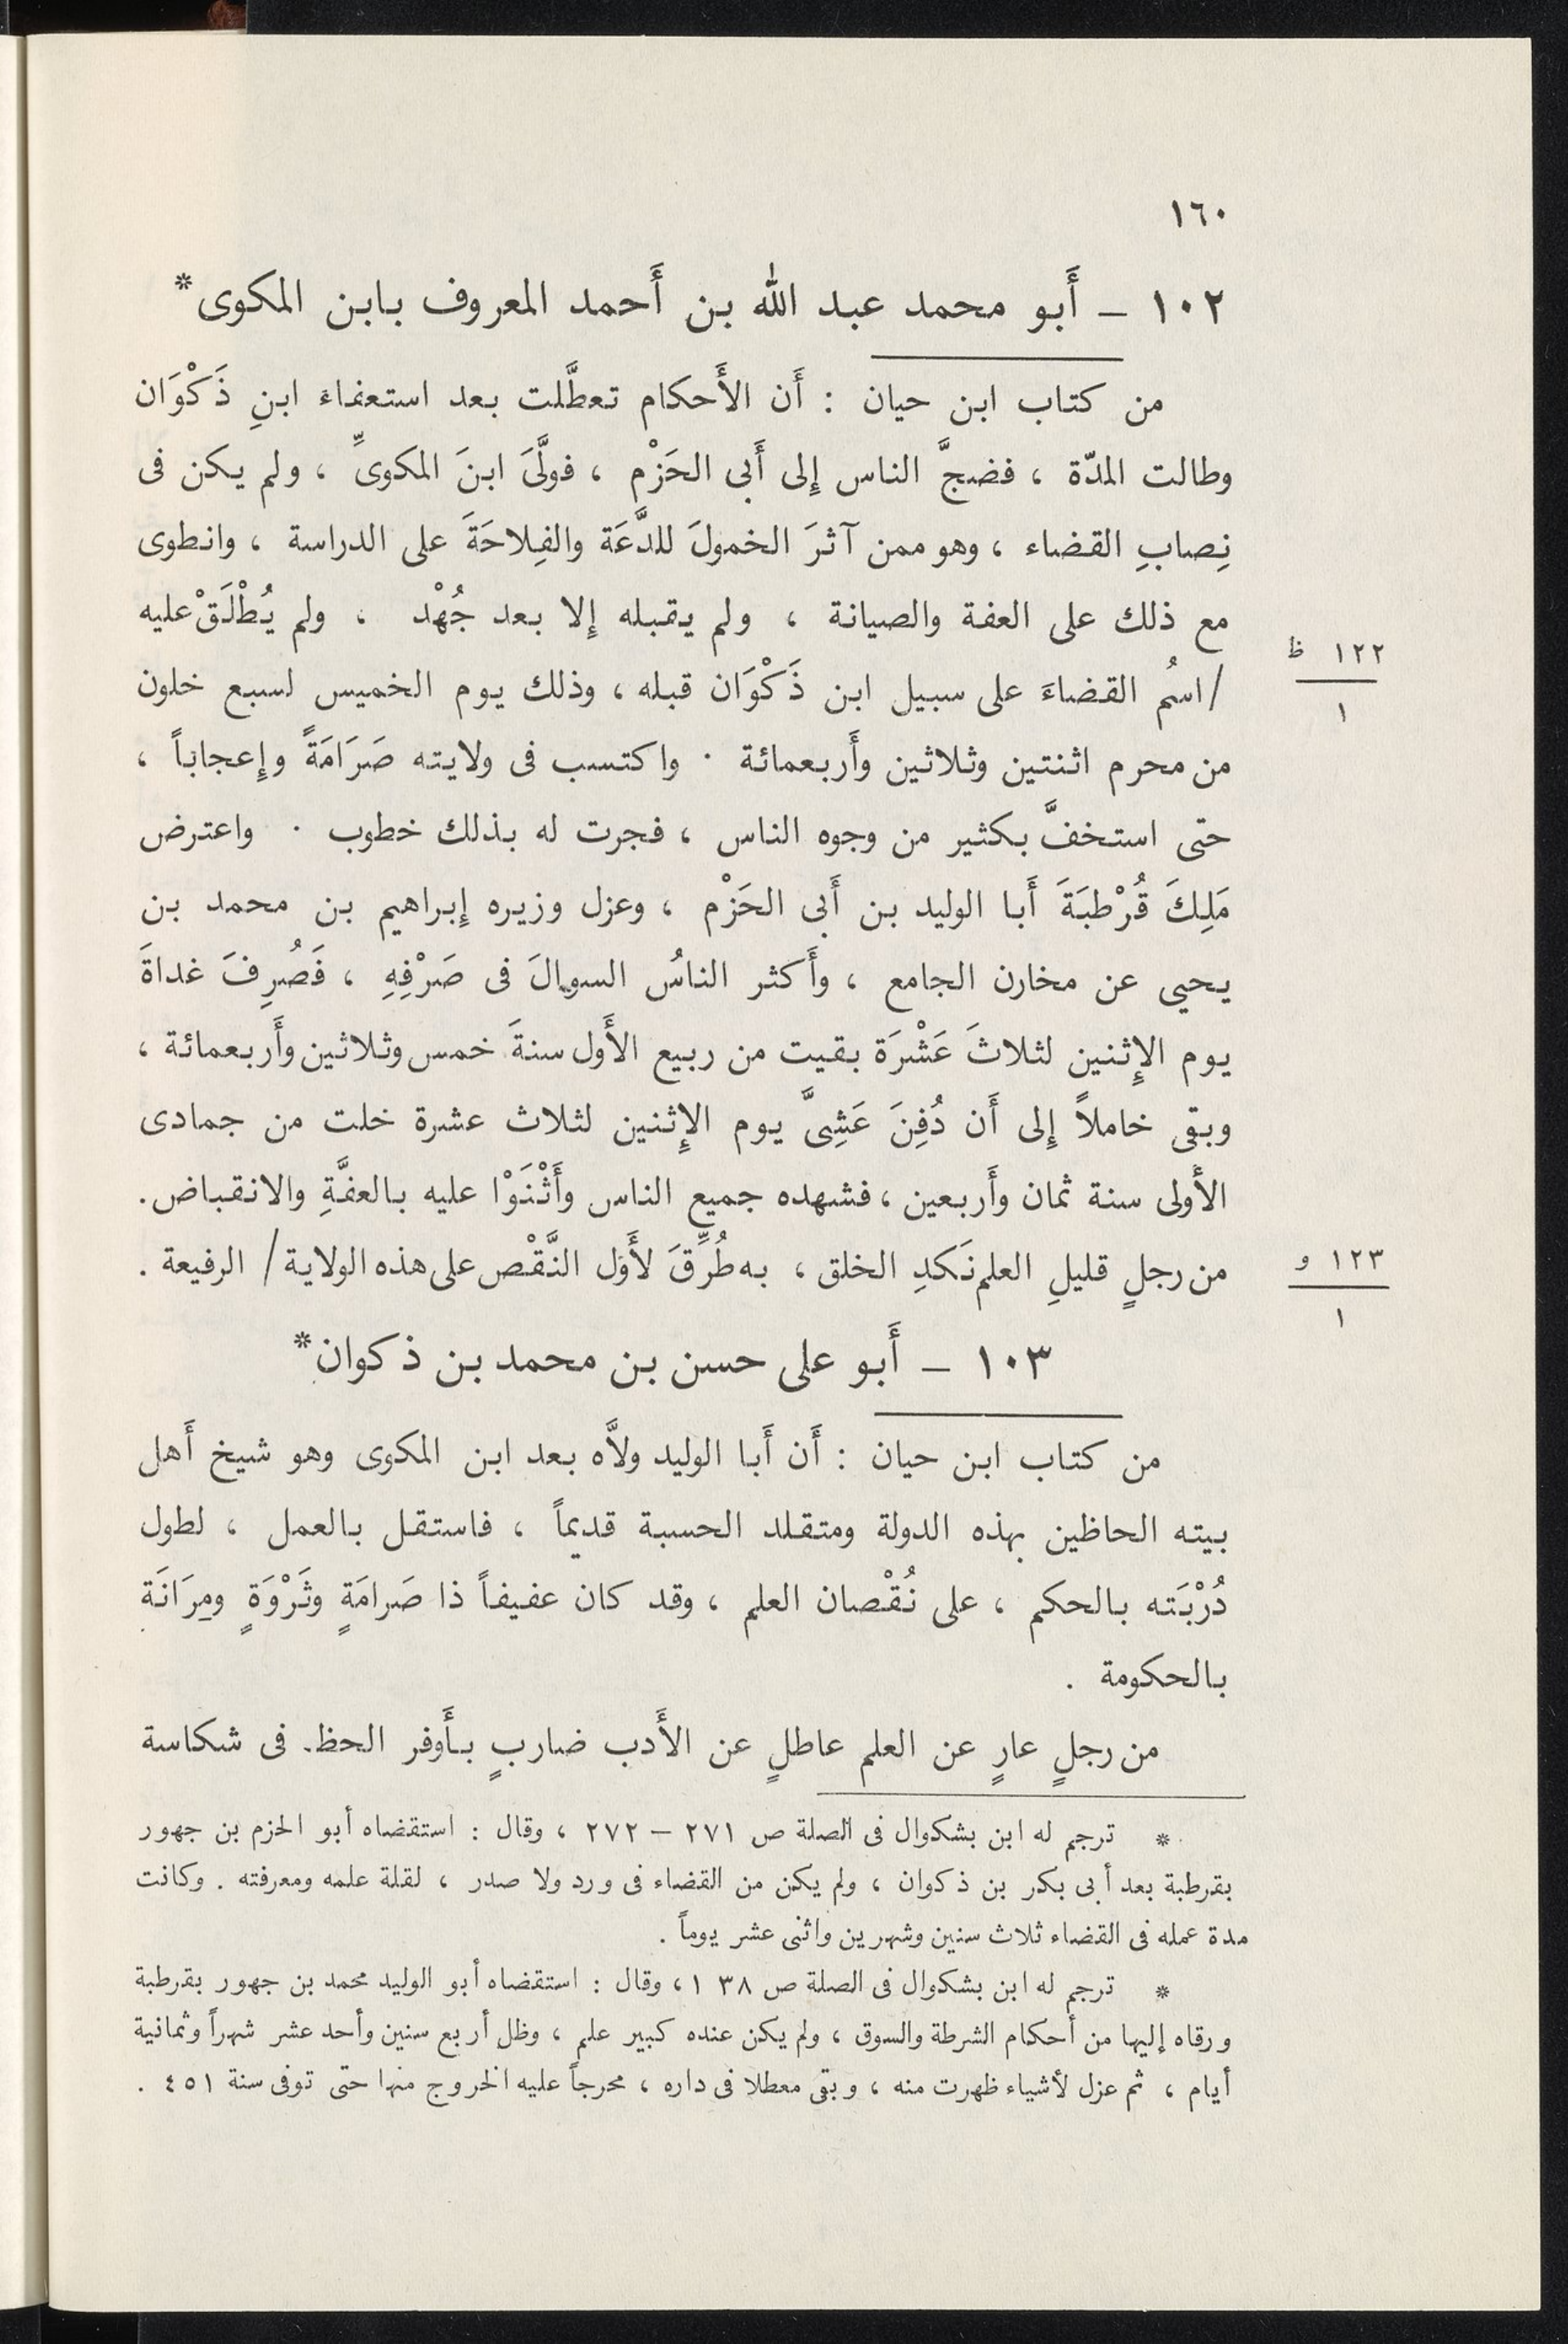 ١٦٠
١٠٢ — أَبو محمد عبد الله بن أَحمد المعروف بابن المكوى*
من كتاب ابن حيان : أَن الأَحكام تعطَّلت بعد استعفاء ابنِ ذَكْوَان
وطالت المدّة ، فضجَّ الناس إِلى أَبى الحَزْم ، فولَّىَ ابنَ المكوىِّ ، ولم يكن فى
نِصابِ القضاء ، وهو ممن آثرَ الخمولَ للدَّعَة والفِلاحَةَ على الدراسة ، وانطوى
مع ذلك على العفة والصيانة ، ولم يقبله إِلا بعد جُهْد ، ولم يُطْلَقْ عليه
١٢٢ ظ
/اسمُ القضاءَ على سبيل ابن ذَكْوَان قبله ، وذلك يوم الخميس لسبع خلون
١
من محرم اثنتين وثلاثين وأَربعمائة . واكتسب فى ولايته صَرَامَةً وإِعجاباً ،
حتى استخفَّ بكثير من وجوه الناس ، فجرت له بذلك خطوب . واعترض
مَلِكَ قُرْطبَةَ أَبا الوليد بن أَبى الحَزْم ، وعزل وزيره إِبراهيم بن محمد بن
يحيى عن مخازن الجامع ، وأَكثر الناسُ السوالَ فى صَرْفِهِ ، فَصُرِفَ غداةَ
يوم الإِثنين لثلاثَ عَشْرَة بقيت من ربيع الأَول سنةَ خمس وثلاثين وأَربعمائة ،
وبقى خاملاً إِلى أَن دُفِنَ عَشِىَّ يوم الإِثنين لثلاث عشرة خلت من جمادى
الأَولى سنة ثمان وأَربعين ، فشهده جميع الناس وأَثْنَوْا عليه بالعفَّةِ والانقباض .
من رجلٍ قليلِ العلم نَكدِ الخلق ، به طُرِّقَ لأَوَل النَّقْص على هذه الولاية / الرفيعة .
١٢٣ و
١
١٠٣ — أَبو على حسن بن محمد بن ذكوان*
من كتاب ابن حيان : أَن أَبا الوليد ولاَّه بعد ابن المكوى وهو شيخ أَهل
بيته الحاظين بهذه الدولة ومتقلد الحسبة قديماً ، فاستقل بالعمل ، لطول
دُرْبَته بالحكم ، على نُقْصان العلم ، وقد كان عفيفاً ذا صَرامَةٍ وثَرْوَةٍ ومِرَانَة
بالحكومة .
من رجلٍ عارٍ عن العلم عاطلٍ عن الأَدب ضاربٍ بأَوفر الحظ. فى شكاسة
* ترجم له ابن بشكوال فى الصلة ص ٢٧١ — ٢٧٢ ، وقال : استقضاه أبو الحزم بن جهور
بقرطبة بعد أبى بكر بن ذكوان ، ولم يكن من القضاء فى ورد ولا صدر ، لقلة علمه ومعرفته . وكانت
مدة عمله فى القضاء ثلاث سنين وشهرين واثنى عشر يوماً .
* ترجم له ابن بشكوال فى الصلة ص ١٣٨ ، وقال : استقضاه أبو الوليد محمد بن جهور بقرطبة
ورقاه إليها من أحكام الشرطة والسوق ، ولم يكن عنده كبير علم ، وظل أربع سنين وأحد عشر شهراً وثمانية
أيام ، ثم عزل لأشياء ظهرت منه ، وبقى معطلا فى داره ، محرجاً عليه الخروج منها حتى توفى سنة ٤٥١ .